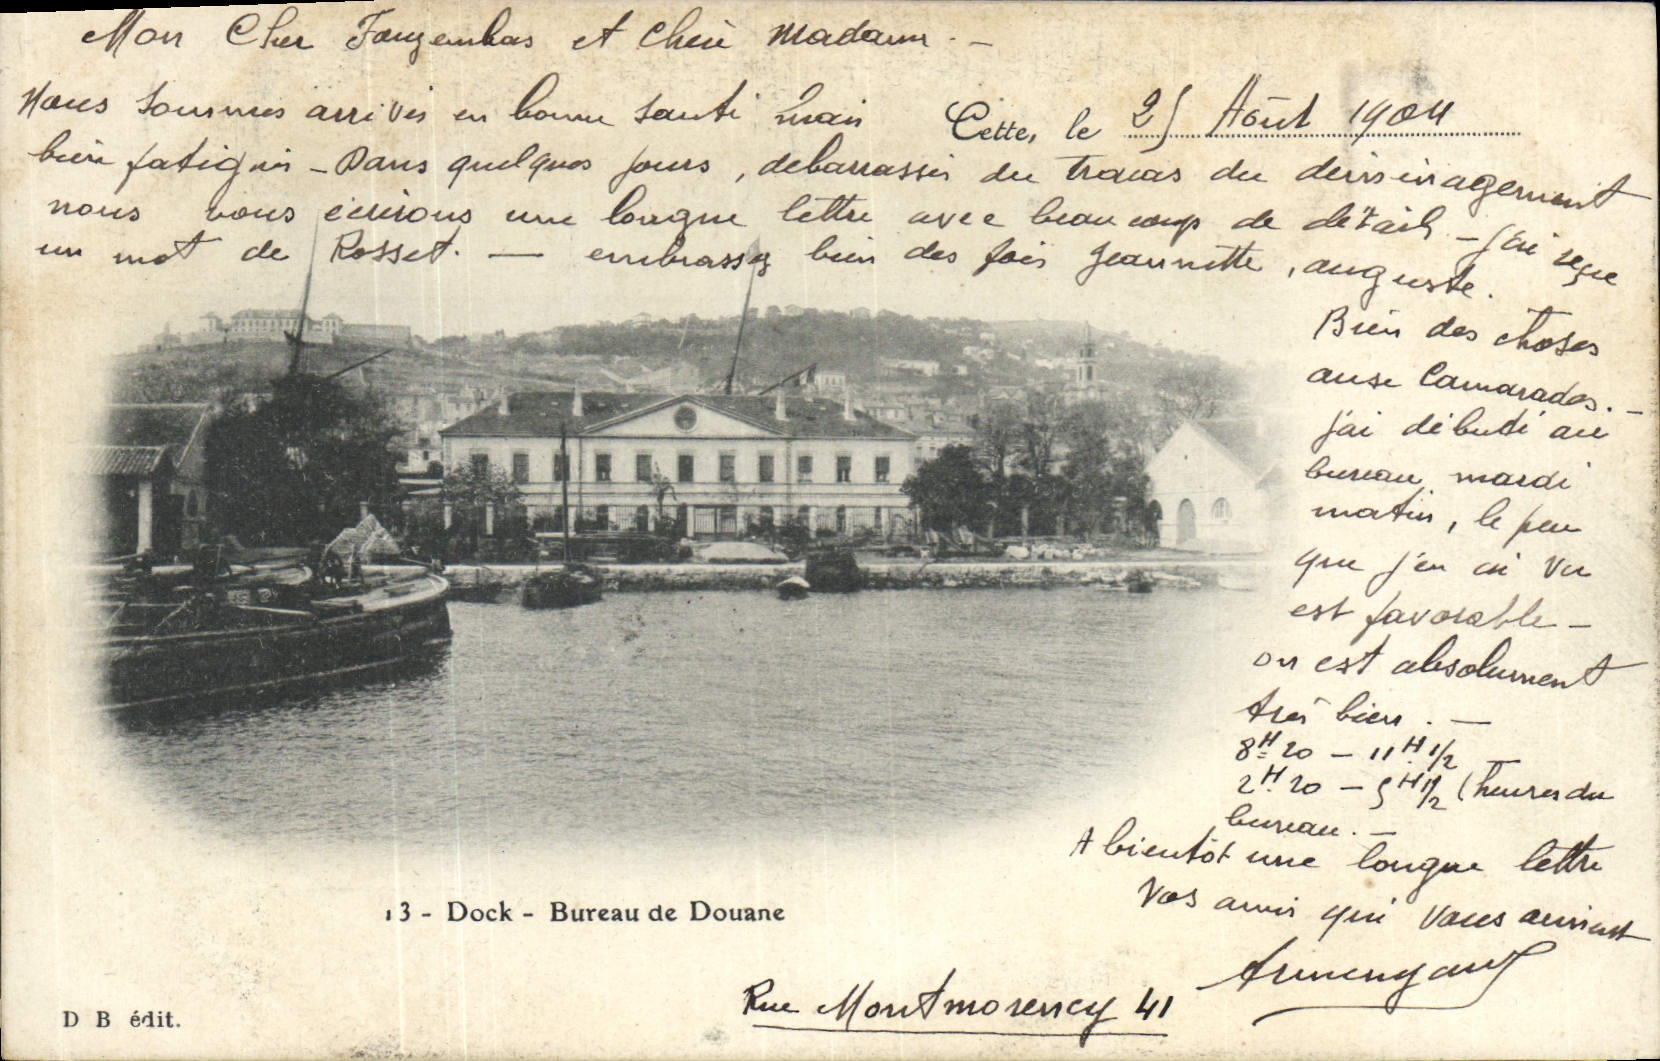 Mon Cher Fougembas et Chère Madame. -
Cette, le 25 Août 1904
Nous sommes arrivés en bonne santé mais
bien fatigués - Dans quelques jours, debarrassés du tracas du déménagement
nous vous écrirons une longue lettre avec beaucoup de détails - J'ai reçu
un mot de Rosset. — embrassez bien des fois Jeannette, auguste.
Bien des choses
aux Camarades. -
J'ai débuté au
bureau mardi
matin, le peu
que j'en ai vu
est favorable -
on est absolument
très bien. —
8H 20 - 11H 1/2
2H 20 - 5H 1/2 (heures du
bureau. -
A bientôt une longue lettre
Vos amis qui vous aiment
Armengaud
13 - Dock - Bureau de Douane
Rue Montmorency 41
D B édit.